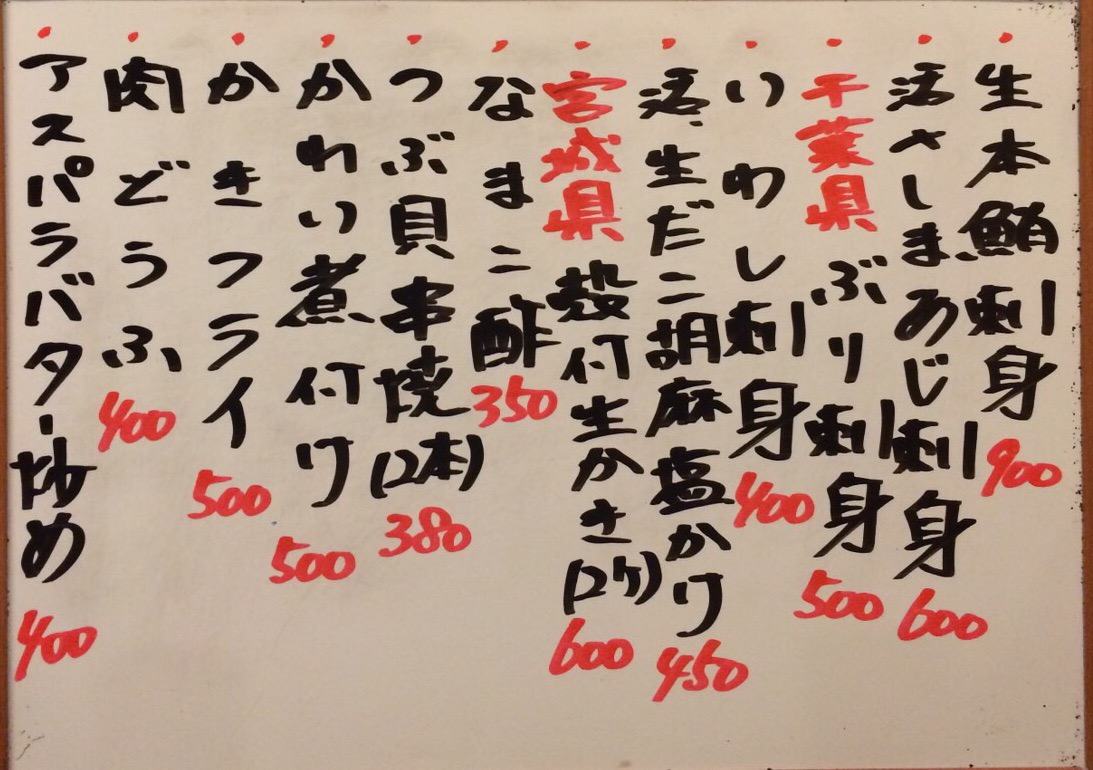 ・生本鮪刺身 900
・活さしまあじ刺身 600
・千葉県 ぶり刺身 500
・いわし刺身 400
・活、生だこ胡麻塩かけ 450
・宮城県 殻付生かき(2ケ) 600
・なまこ酢 350
・つぶ貝串焼(2本) 380
・かれい煮付け 500
・かきフライ 500
・肉どうふ 400
・アスパラバター炒め 400